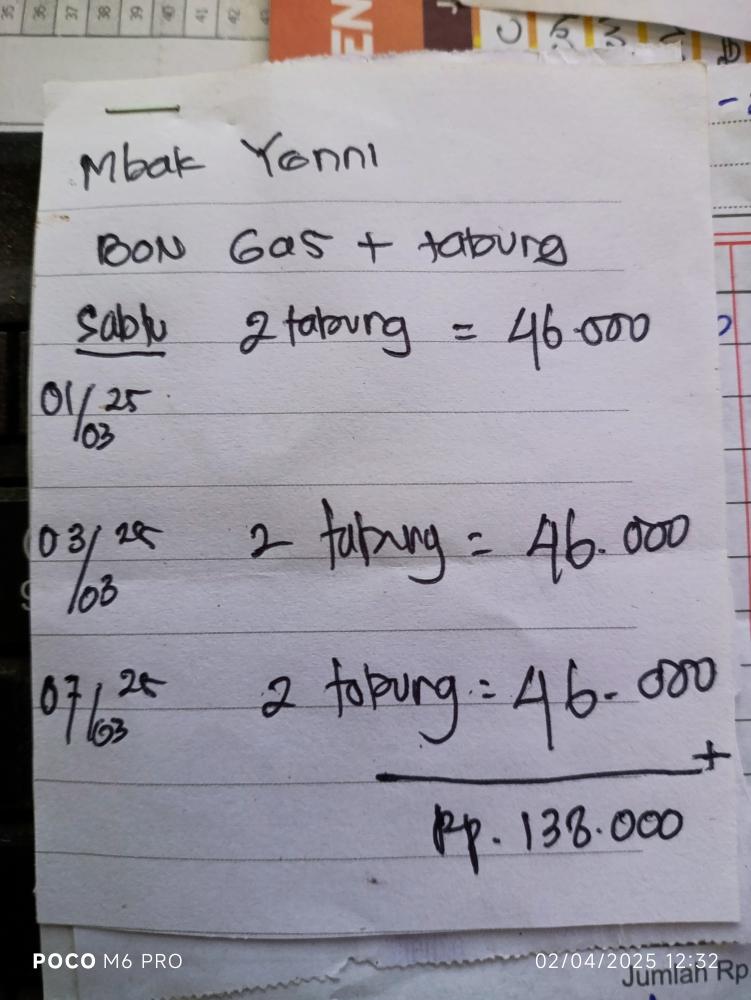 35 36 37 38 39 40 41 42
EN
Mbak Yonni
BON Gas + tabung
Sabtu 2 tabung = 46.000
01/03 25
03/03 25 2 tabung = 46.000
07/03 25 2 tabung = 46.000
+
Rp. 138.000
POCO M6 PRO
02/04/2025 12:32
Jumlah Rp